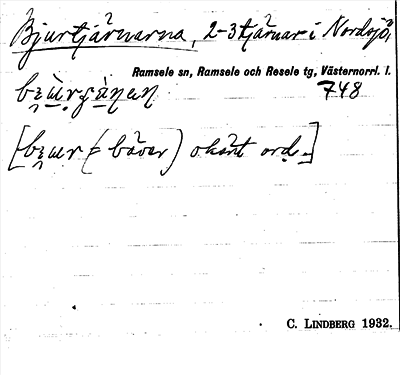 Bjurtjärnarna, 2-3 tjärnar i Nordsjö,
Ramsele sn, Ramsele och Resele tg, Västernorrl. l.
748
[ (= bäver) okänt ord.]
C. LINDBERG 1932.